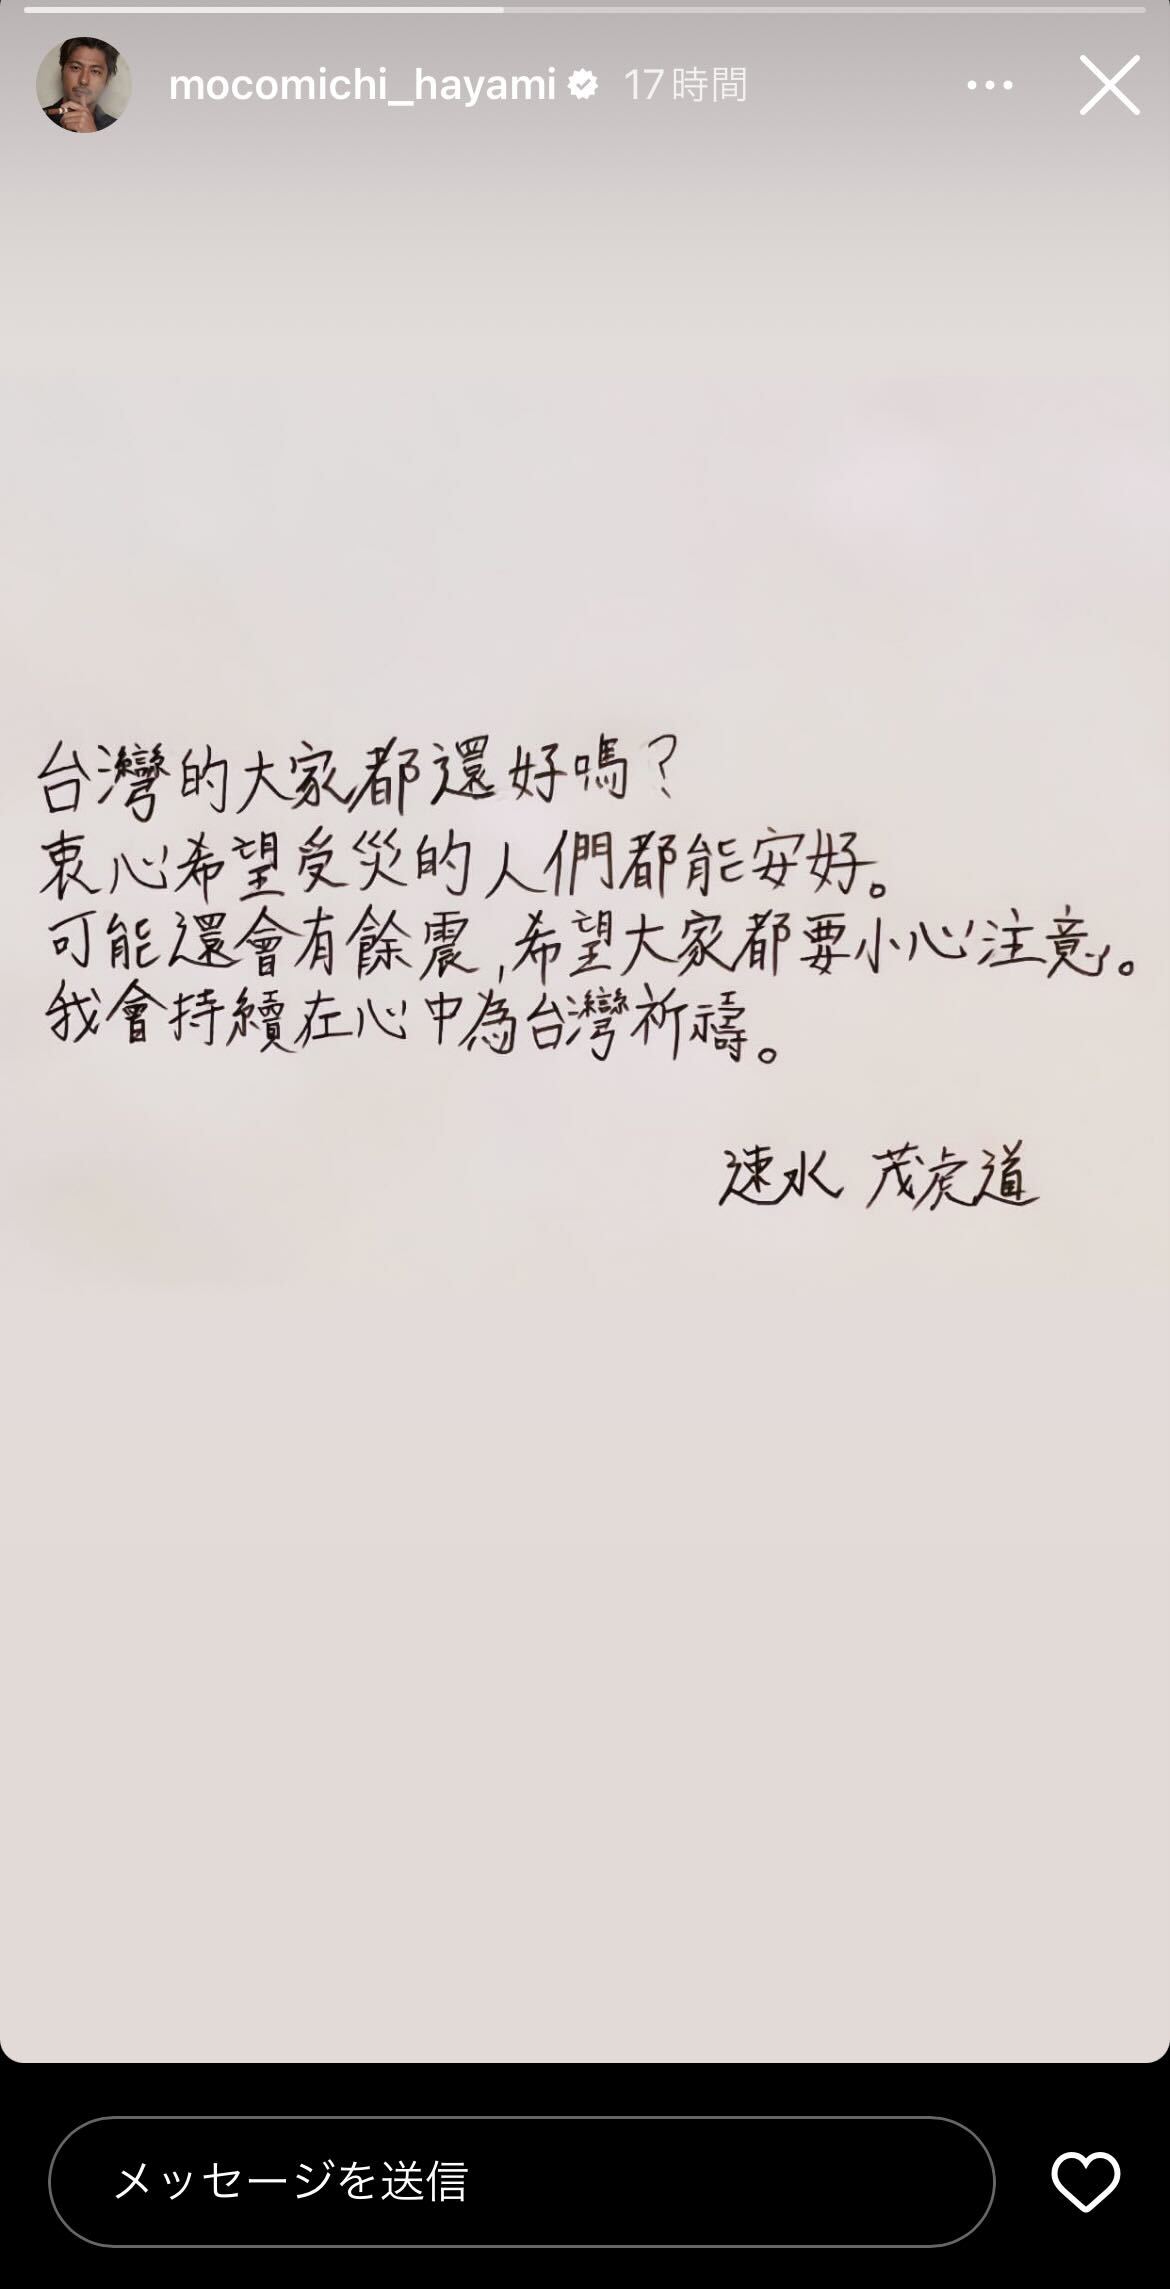 mocomichi_hayami 17時間
台灣的大家都還好嗎？
衷心希望受災的人們都能安好。
可能還會有餘震,希望大家都要小心注意。
我會持續在心中為台灣祈禱。
速水 茂虎道
メッセージを送信